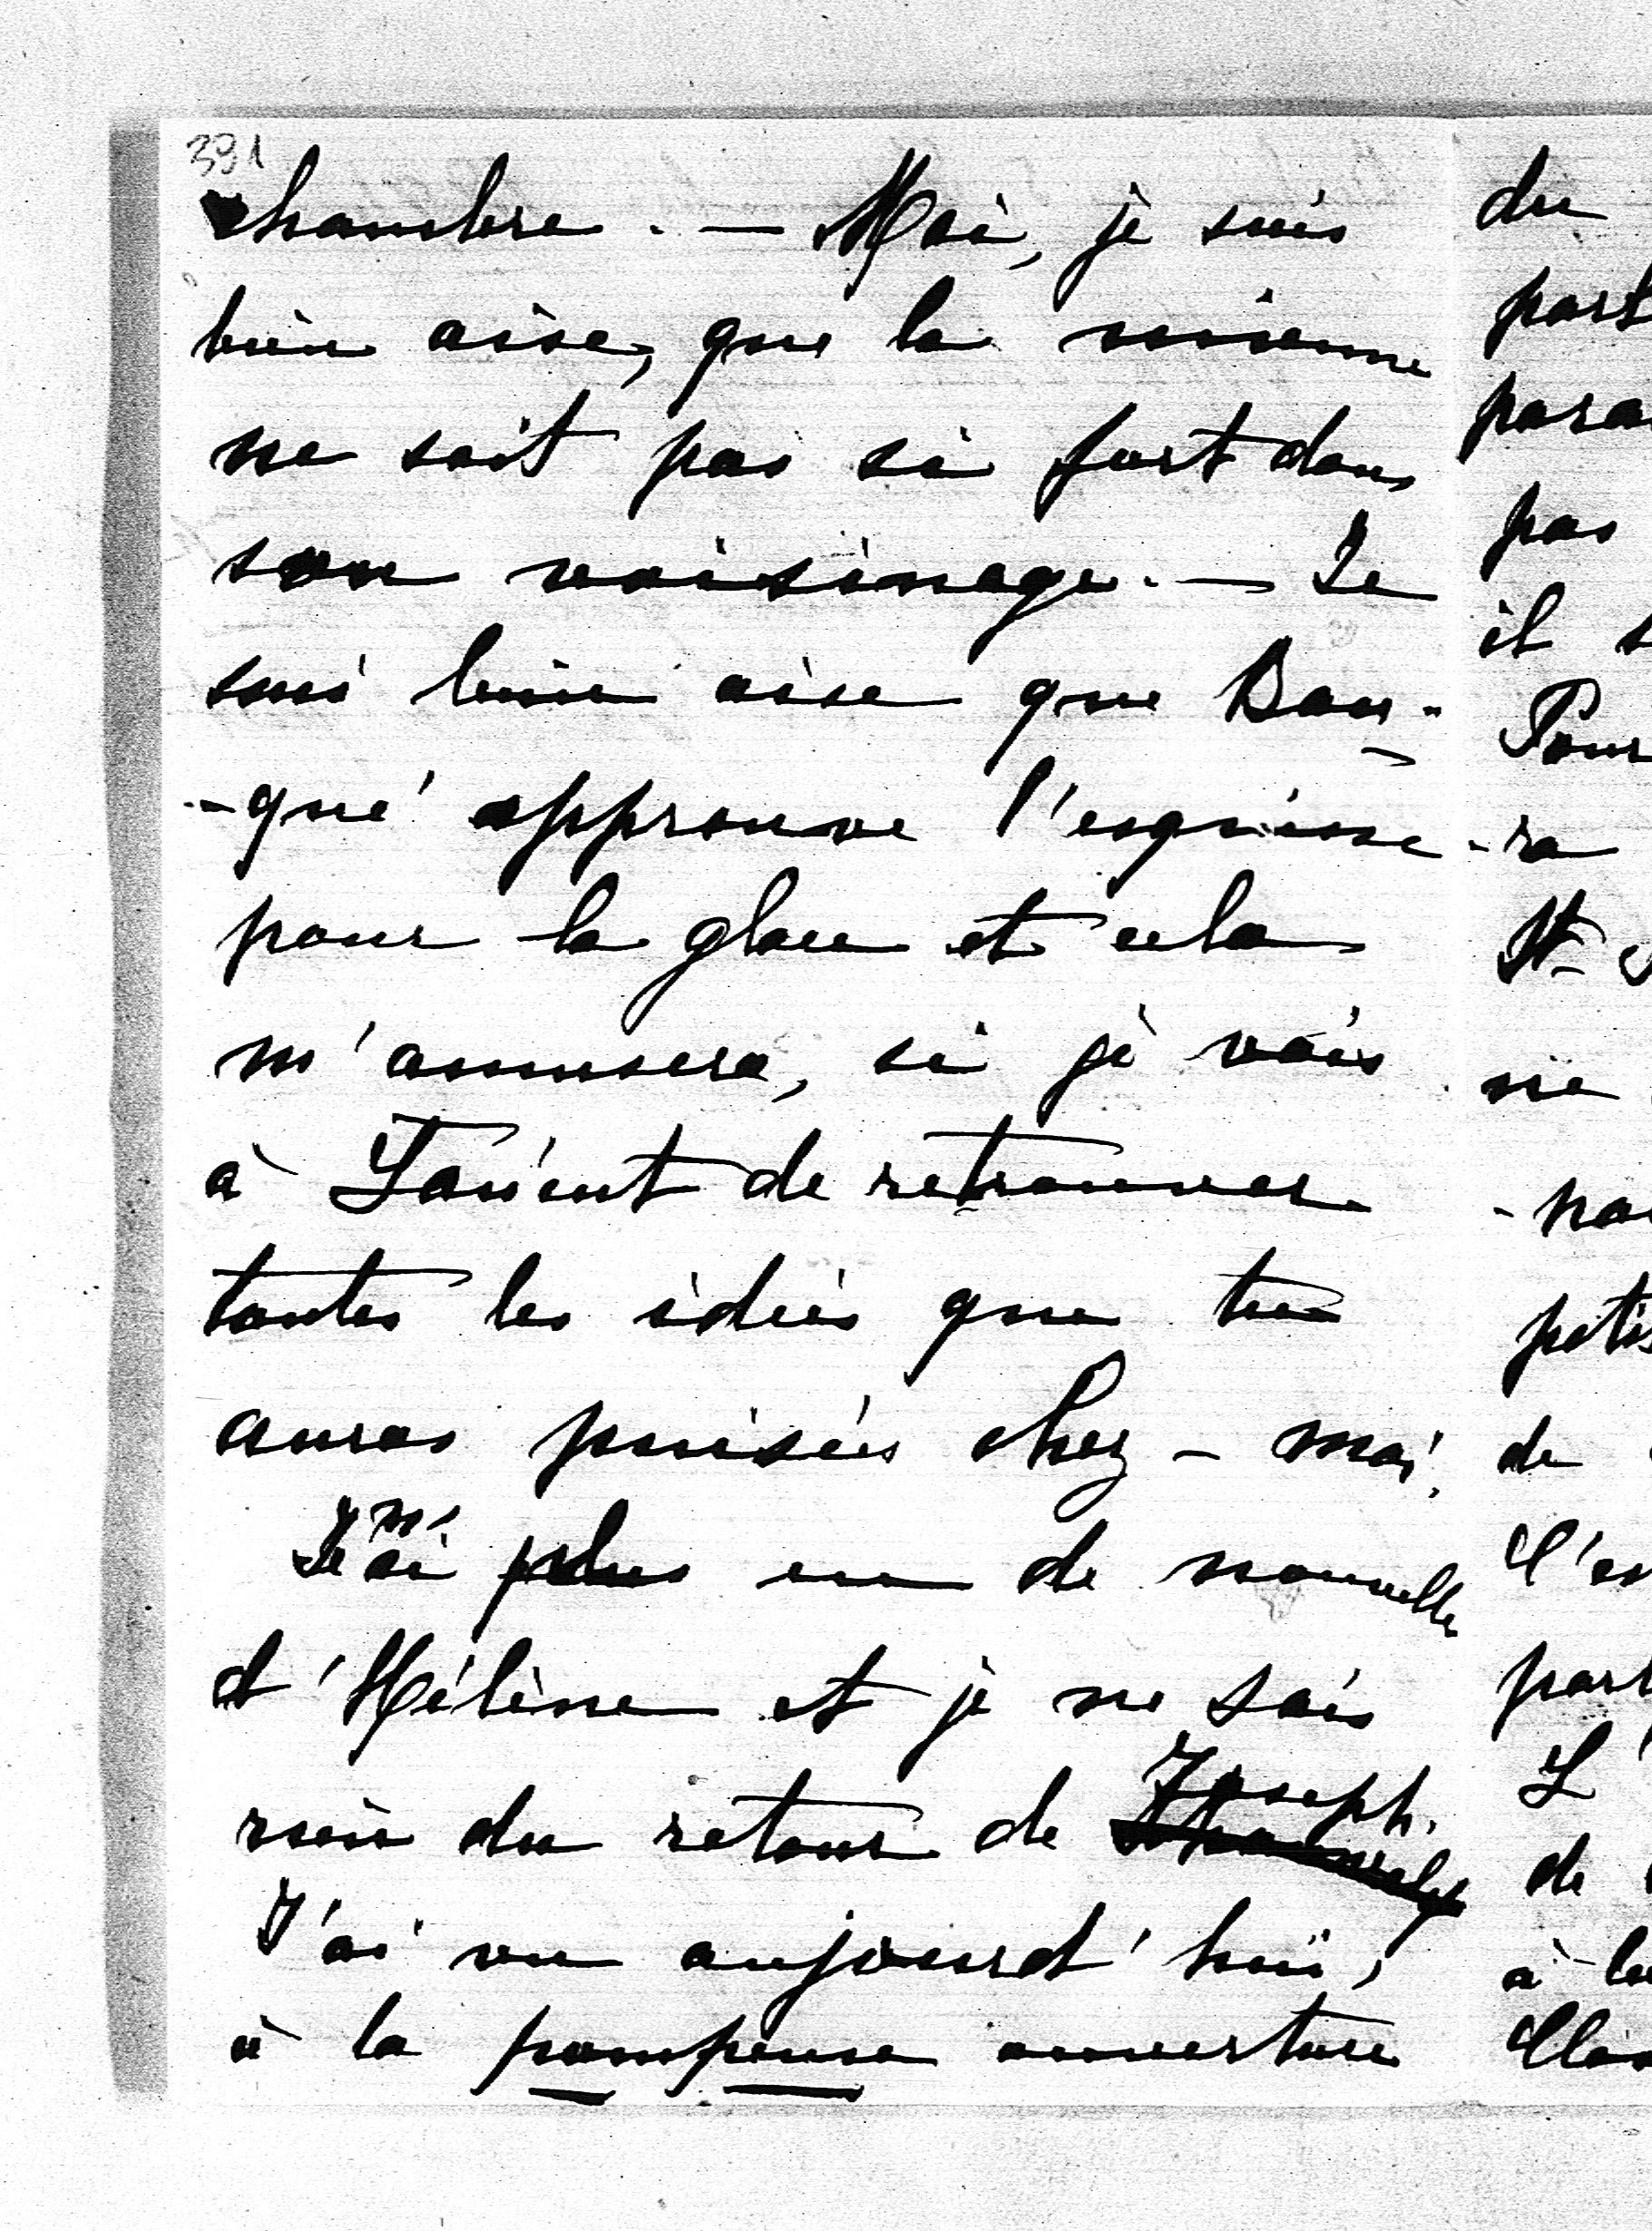 391
chambre. — Moi, je suis
bien aise, que la mienne
ne soit pas si fort dans
son voisinage. — Je
suis bien aise que Bou-
-qué approuve l'esquisse
pour la glace et cela
m'amusera, si je vais
à de retrouver
toutes les idées que tu
auras puisées chez-moi.
J'ai plus eu de nouvelles
d'Hélène et je ne sais
rien du retour de Joseph.
J'ai vu aujourd'hui,
à la pompeuse ouverture
du
part
para
pas
il s
Pour
-ra
St-
nie
-na
petis
de
C'es
part
L'
de
à la